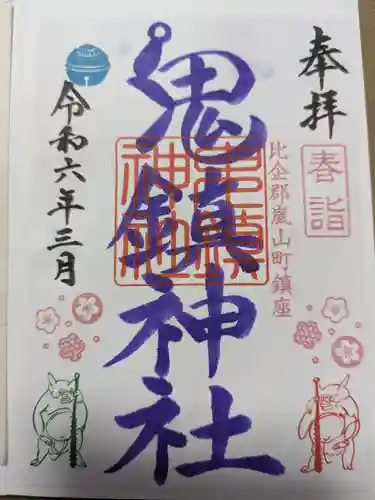 奉拝
春詣
比企郡嵐山町鎮座
鬼鎮神社
鬼鎮神社
令和六年三月